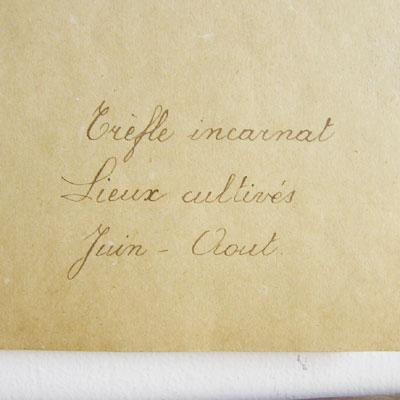 Trèfle incarnat
Lieux cultivés
Juin - Aout.